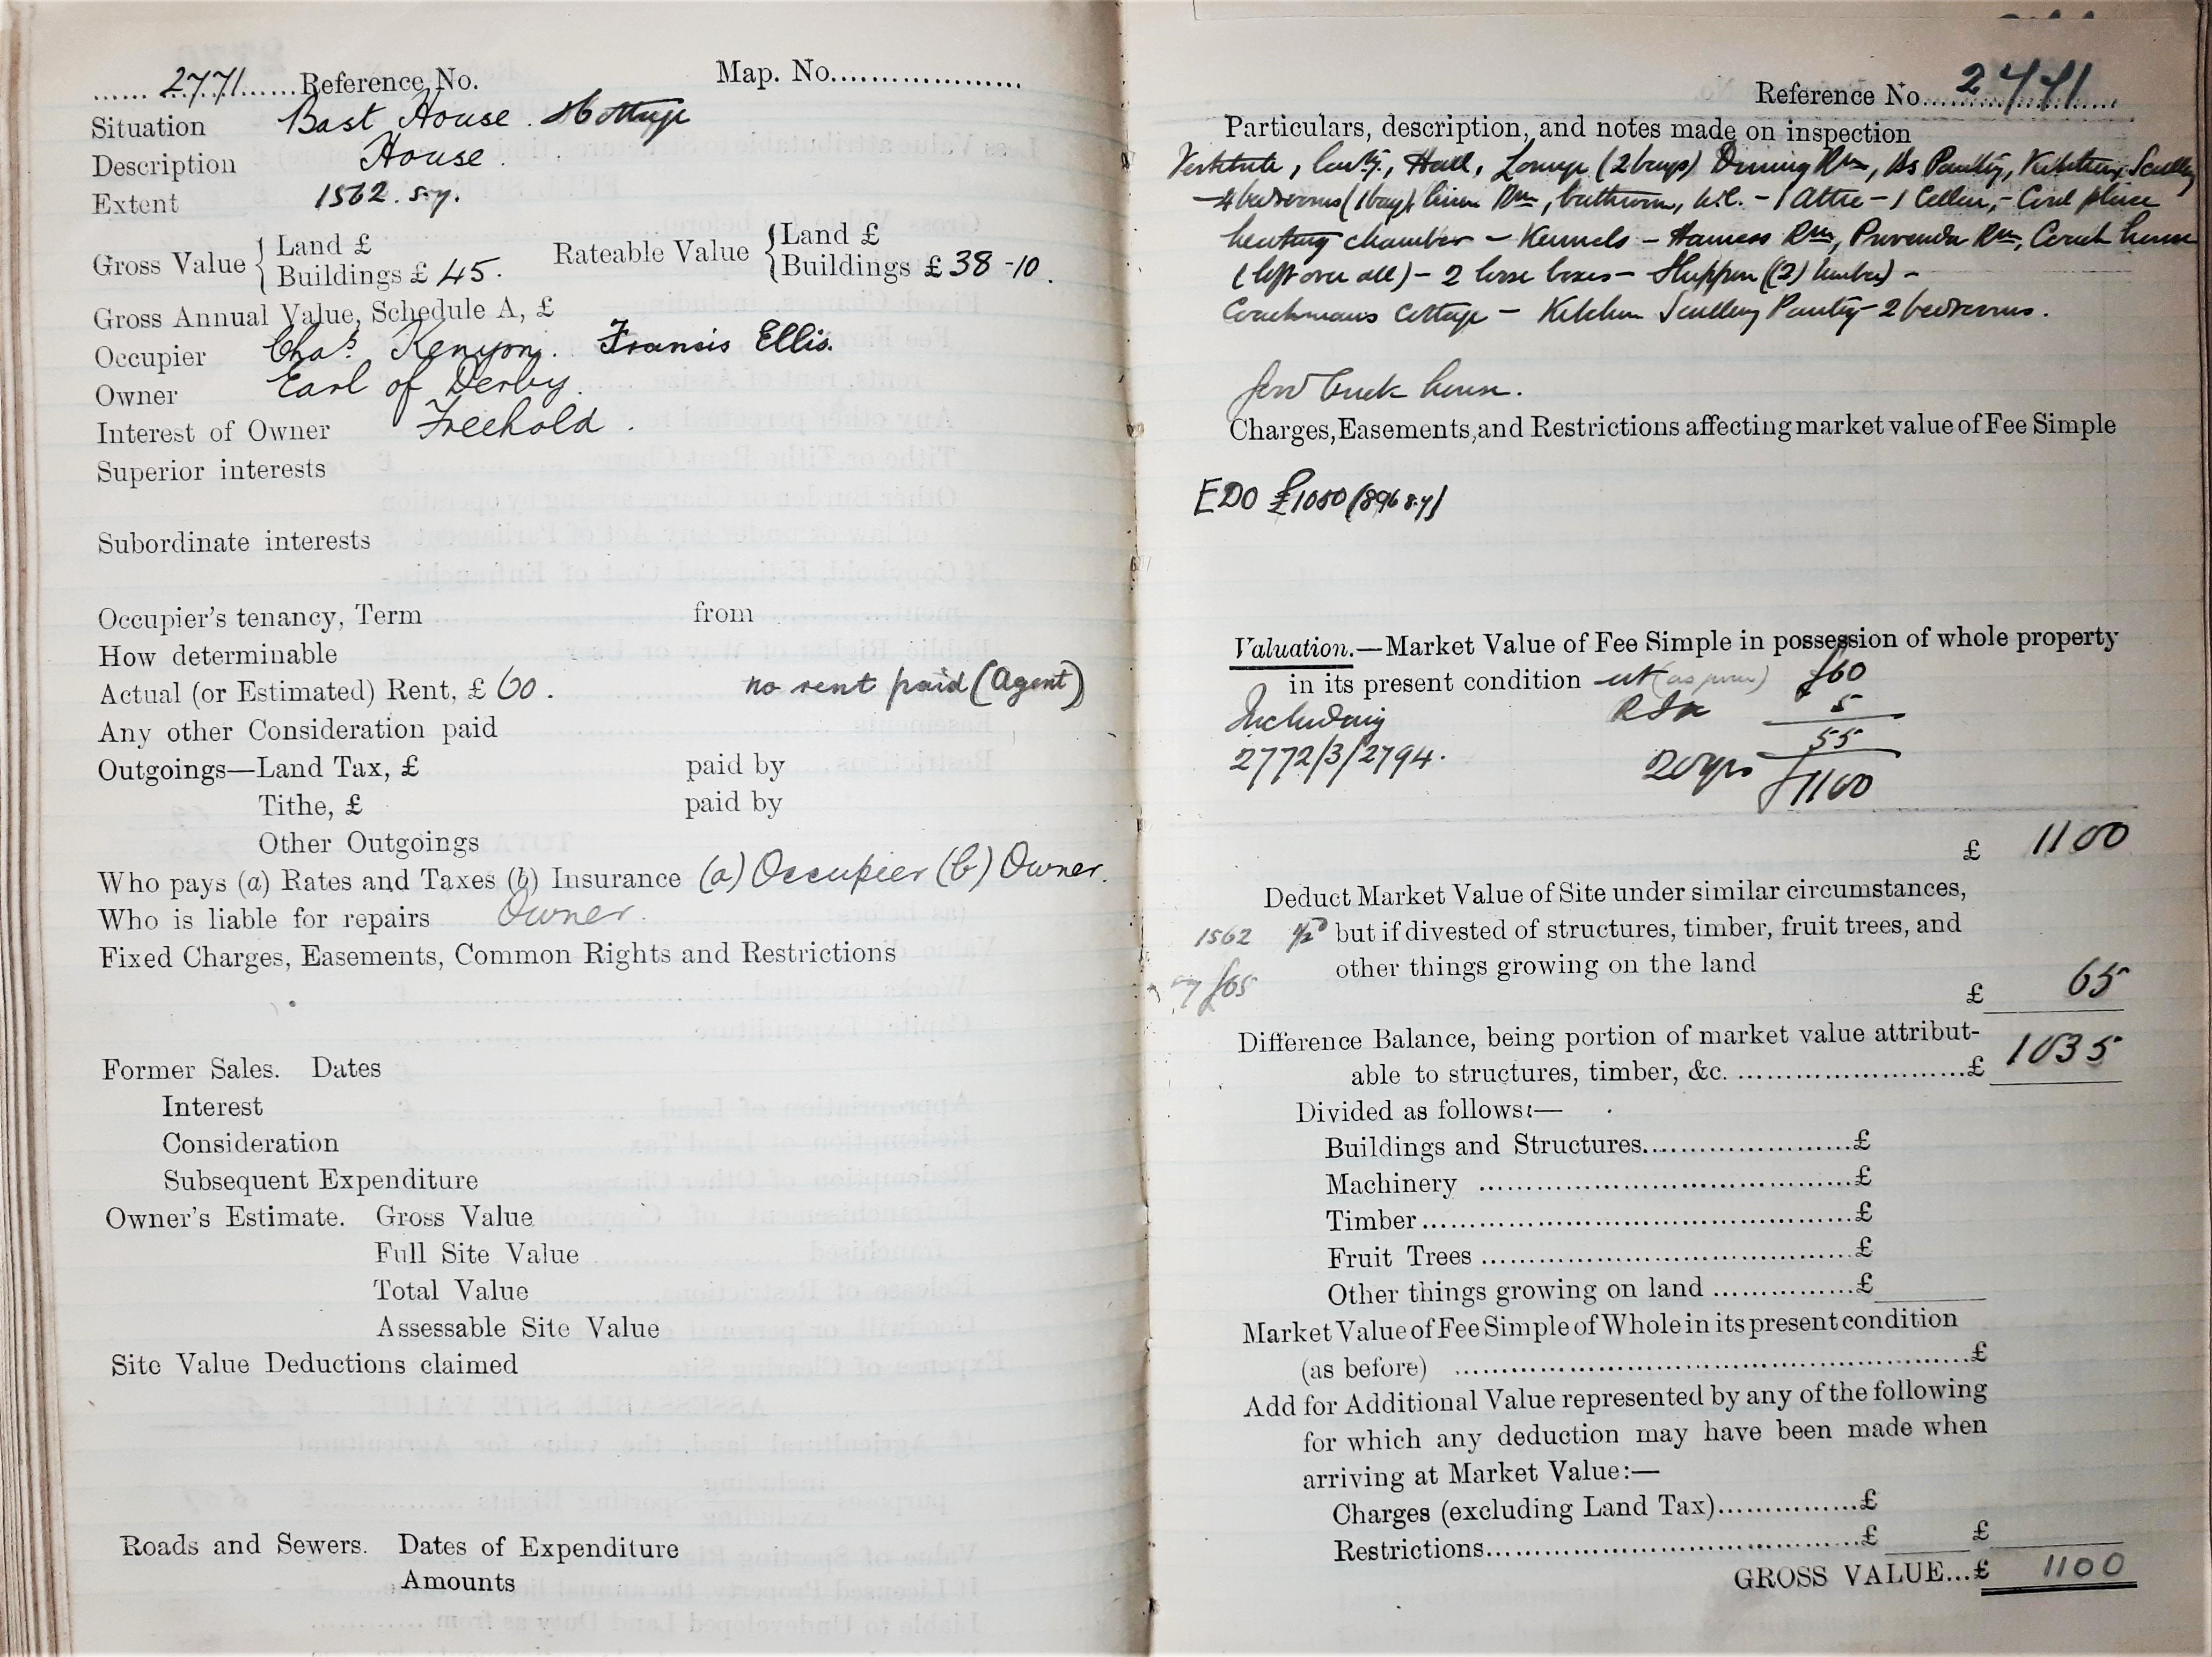 ...... 2771 ...... Reference No.
Map. No.....................
Situation Bast House. & Cottage
Description House.
Extent 1562. s.y.
Gross Value { Land £
Buildings £ 45.
Rateable Value { Land £
Buildings £ 38-10.
Gross Annual Value, Schedule A, £
Occupier Chas. Kenyon. Francis Ellis.
Owner Earl of Derby.
Interest of Owner Freehold.
Superior interests
Subordinate interests
Occupier's tenancy, Term from
How determinable
Actual (or Estimated) Rent, £ 60. no rent paid (Agent)
Any other Consideration paid
Outgoings—Land Tax, £ paid by
Tithe, £ paid by
Other Outgoings
Who pays (a) Rates and Taxes (b) Insurance (a) Occupier (b) Owner.
Who is liable for repairs Owner.
Fixed Charges, Easements, Common Rights and Restrictions
Former Sales. Dates
Interest
Consideration
Subsequent Expenditure
Owner's Estimate. Gross Value
Full Site Value
Total Value
Assessable Site Value
Site Value Deductions claimed
Roads and Sewers. Dates of Expenditure
Amounts
Reference No. 2771
Particulars, description, and notes made on inspection
Vestibule, Lavty, Hall, Lounge (2 bays) Dining Rm, Bs Pantry, Kitchen, Scullery
- 4 bedrooms (1 bay) linen Rm, bathroom, W.C. - 1 Attic - 1 Cellar, - Coal place
heating chamber - Kennels - Harness Rm, Provender Rm, Coach house
(loft over all) - 2 loose boxes - Shippon ((2) timber) -
Coachmans Cottage - Kitchen Scullery Pantry - 2 bedrooms.
brick house.
Charges, Easements, and Restrictions affecting market value of Fee Simple
EDO £1050 (896 s.y)
Valuation.—Market Value of Fee Simple in possession of whole property
in its present condition £60
Including 5
55
2772/3/2794. 20 yrs £1100
£ 1100
Deduct Market Value of Site under similar circumstances,
1562 but if divested of structures, timber, fruit trees, and
other things growing on the land
£65
£ 65
Difference Balance, being portion of market value attribut-
able to structures, timber, &c. ........................£ 1035
Divided as follows:—
Buildings and Structures......................£
Machinery ......................................£
Timber............................................£
Fruit Trees ......................................£
Other things growing on land ...............£
Market Value of Fee Simple of Whole in its present condition
(as before) ......................................................£
Add for Additional Value represented by any of the following
for which any deduction may have been made when
arriving at Market Value:—
Charges (excluding Land Tax)...............£
Restrictions.....................................£ £
GROSS VALUE...£ 1100